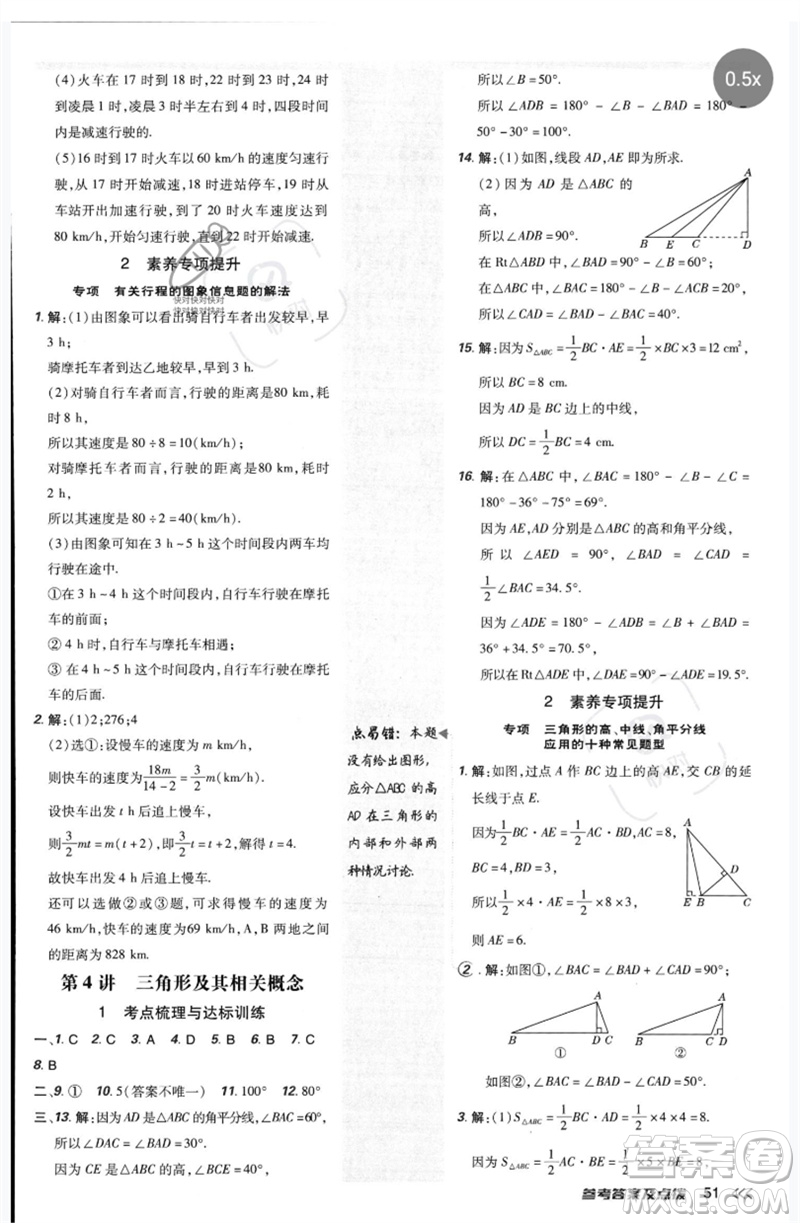 (4)火车在 17 时到 18 时,22 时到 23 时,23
时到凌晨 1 时半左右,凌晨 3 时到 4 时,四段时间
内是减速行驶的.
(5)16 时到 17 时火车以60 km/h 的速度匀速行
驶,从 17 时开始减速,18 时进站停车,19 时从
车站开出并加速行驶,到了 20 时速度达到
80 km/h,开始匀速行驶,直到 22 时开始减速.
2 素养专项提升
专项 有关行程的图象信息题的解法
1. 解:(1)由图象可以看出骑自行车者出发较早,早
3 h;
骑摩托车者到达乙地较早,早 3 h.
(2)对骑自行车者而言,行驶的距离是 80 km,耗
时 8 h,
所以其速度是 80÷8=10(km/h);
对骑摩托车者而言,行驶的距离是 80 km,耗时
2 h,
所以其速度是 80÷2=40(km/h).
(3)由图象可知在 3 h~5 h 这个时间段内两车均
行驶在途中.
①在 3 h~4 h 这个时间段内,自行车行驶在摩托
车的前面;
②4 h 时,自行车与摩托车相遇;
③在 4 h~5 h 这个时间段内,自行车行驶在摩托
车的后面.
2. 解:(1)2;276;4
(2)选①:设慢车的速度为 m km/h,
则快车的速度为 18m/(14-2)=3/2 m(km/h),
设快车出发 t h 后追上慢车,
则 3/2 mt=m(t+2),即 3/2 t=t+2,解得 t=4.
故快车出发 4 h 后追上慢车.
还可以选做②或③题,可求得慢车的速度为
46 km/h,快车的速度为69 km/h,A,B 两地之间的
路程为 828 km.
第 4 讲 三角形及其相关概念
1 考点梳理与达标训练
一、1. C 2. C 3. A 4. D 5. B 6. B 7. C
8. B
二、9. ① 10. 5(答案不唯一) 11. 100° 12. 80°
三、13. 解:因为 AD 是△ABC 的角平分线,
所以∠DAC=∠BAD=30°.
因为 CE 是△ABC 的高,∠BCE=40°,
点易错:本题
没有给出图形,
应分△ABC 的高
AD 在三角形的
内部和外部两
种情况讨论.
所以∠B=50°.
所以∠ADB=180°-∠B-∠BAD=180°-
50°-30°=100°.
14. 解:(1)如图,线段 AD,AE 即为所求.
(2)因为 AD 是△ABC 的
高,
A
B E C D
所以∠ADB=90°.
在 Rt△ABD 中,∠BAD=90°-∠B=60°,
在 Rt△ACD 中,∠CAD=90°-∠ACD=40°,
所以∠CAD=∠BAD-∠CAD=20°.
15. 解:因为S△ABC=1/2 BC·AE=1/2×BC×3=12 cm²,
所以 BC=8 cm.
因为 AD 是 BC 边上的中线,
所以 DC=1/2 BC=4 cm.
16. 解:在△ABC 中,∠BAC=180°-∠B-∠C=
180°-36°-75°=69°.
因为 AE,AD 分别是△ABC 的高和角平分线,
所以∠AED=90°,∠BAD=∠CAD=
1/2∠BAC=34.5°.
因为∠ADE=180°-∠ADB=∠B+∠BAD=
36°+34.5°=70.5°,
所以在Rt△ADE 中,∠DAE=90°-∠ADE=19.5°.
2 素养专项提升
专项 三角形的高、中线、角平分线
应用的十种常见题型
1. 解:如图,过点 A 作 BC 边上的高 AE,交 CB 的延
长线于点 E.
因为 1/2 BC·AE=1/2 AC·BD,AC=8,
BC=4,BD=3,
所以 1/2×4·AE=1/2×8×3,
所以 AE=6.
A
D
E B C
2. 解:如图①,∠BAC=∠BAD+∠CAD=90°;
A
B D C
①
A
B C D
②
如图②,∠BAC=∠BAD-∠CAD=50°.
3. 解:(1)S△ABC=1/2 BC·AD=1/2×4×4=8.
因为 AC·BE=
参考答案及点拨 51
0.5x
快对快对快对
快对快对快对
答案卷